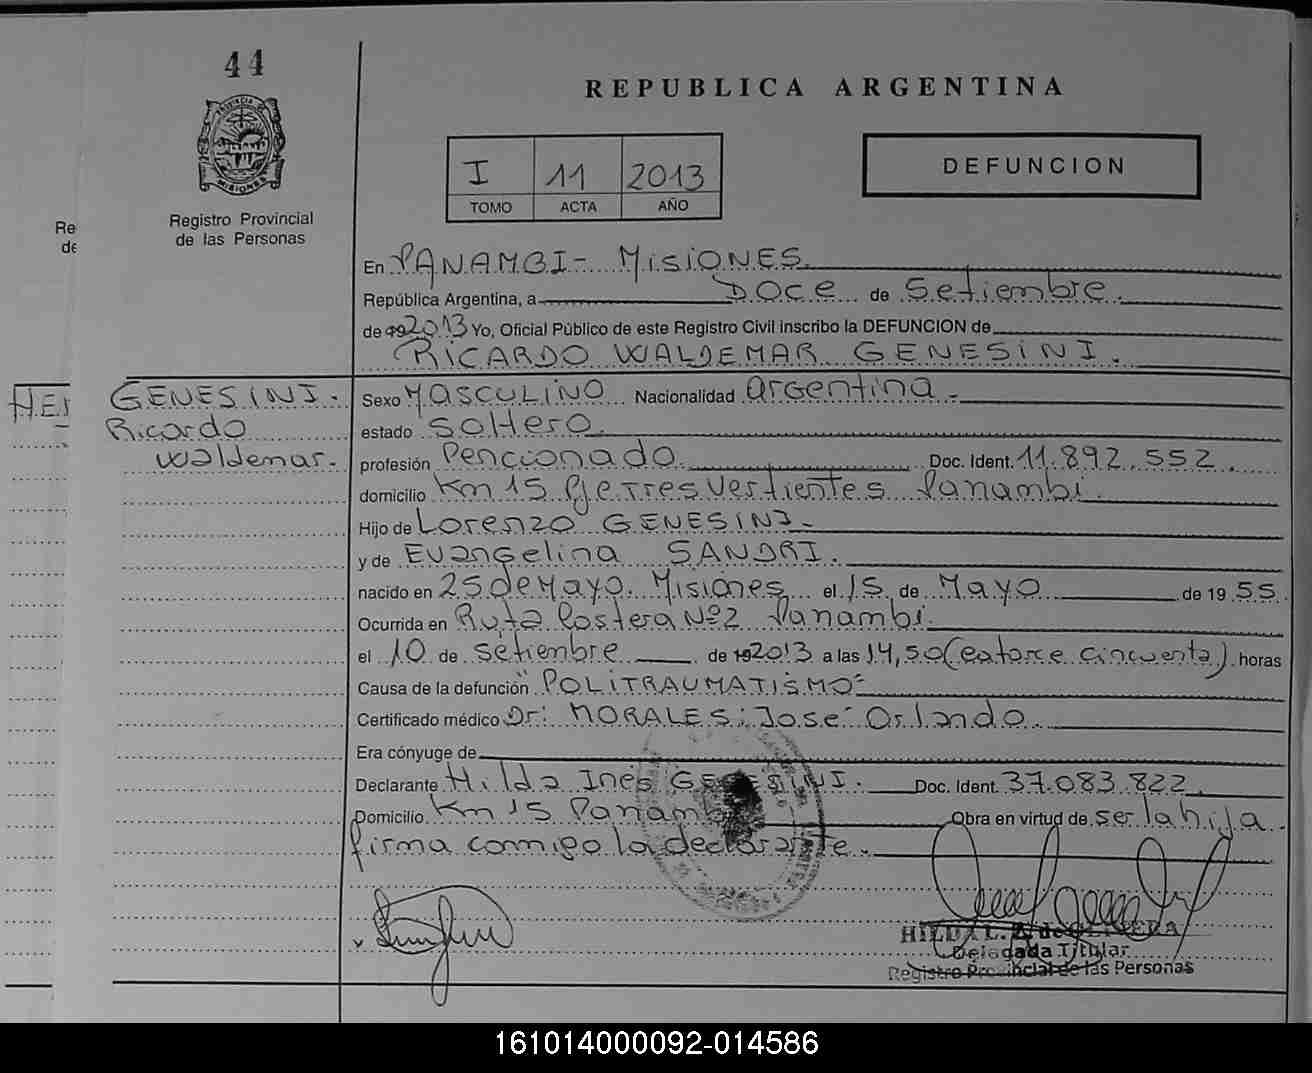 44
REPUBLICA ARGENTINA
PROVINCIA DE
MISIONES
Registro Provincial
de las Personas
I 11 2013
TOMO ACTA AÑO
DEFUNCION
Re
de
En PANAMBI - MisiONES.
República Argentina, a Doce de Setiembre.
de 192013 Yo, Oficial Público de este Registro Civil inscribo la DEFUNCION de
RICARDO WALDEMAR GENESINI.
HE
GENESINI.
Ricardo
Waldemar.
Sexo MASCULINO Nacionalidad argentina.-
estado Soltero.
profesión Pencionado. Doc. Ident. 11.892.552.
domicilio Km 15 Pje Tres Vertientes Panambi.
Hijo de Lorenzo GENESINI.-
y de Evangelina SANDRI.
nacido en 25 de Mayo. Misiones el 15 de Mayo de 1955.
Ocurrida en Ruta Costera Nº2 Panambi.
el 10 de setiembre de 192013 a las 14,50 (catorce cincuenta) horas
Causa de la defunción "POLITRAUMATISMO"
Certificado médico Dr: MORALES; Jose Orlando.
Era cónyuge de
Declarante Hilda Inés GENESINI. Doc. Ident. 37.083.822.
Domicilio Km 15 Panambi Obra en virtud de ser la hija.
firma conmigo la declarante.
HILDA L.
Delegada Titular
Registro Provincial de las Personas
161014000092-014586